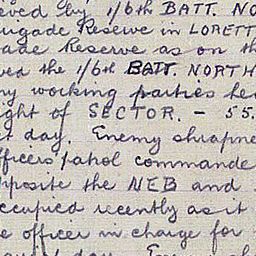 eved by 1/6th BATT. NO
rigade Reserve in LORETT
ade Reserve as on th
ved the 1/6th BATT. NORTH
ny working parties he
ght of SECTOR. - 55.
s day. Enemy shrapne
fficers' patrol commande
pposite the NEB and
ccupied recently as it
e officer in charge for